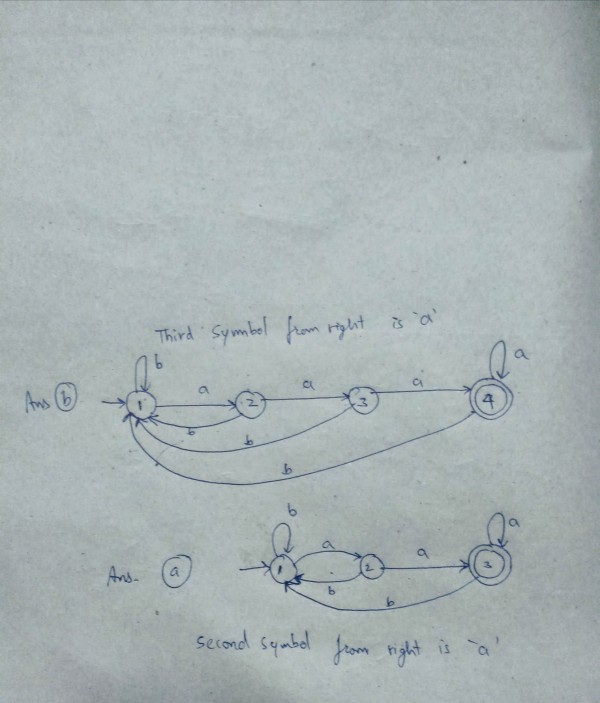 Third symbol from right is 'a'
b
a
a
a
a
Ans b
1
2
3
4
b
b
b
b
a
a
a
Ans. a
1
2
3
b
b
second symbol from right is 'a'